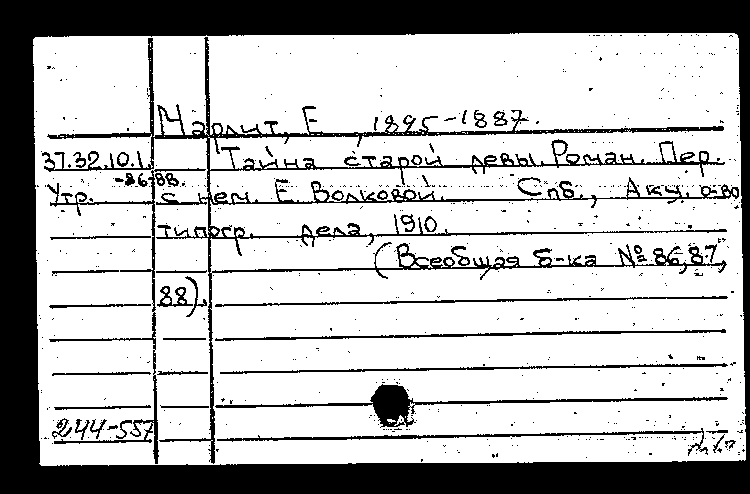 Марлит, Е , 1895-1887.
37.32.10.1. Тайна старой девы. Роман. Пер.
-86-88.
Утр. с нем. Е. Волковой. Спб., Акц. о-во
типогр. дела, 1910.
(Всеобщая б-ка № 86, 87,
88).
244-557